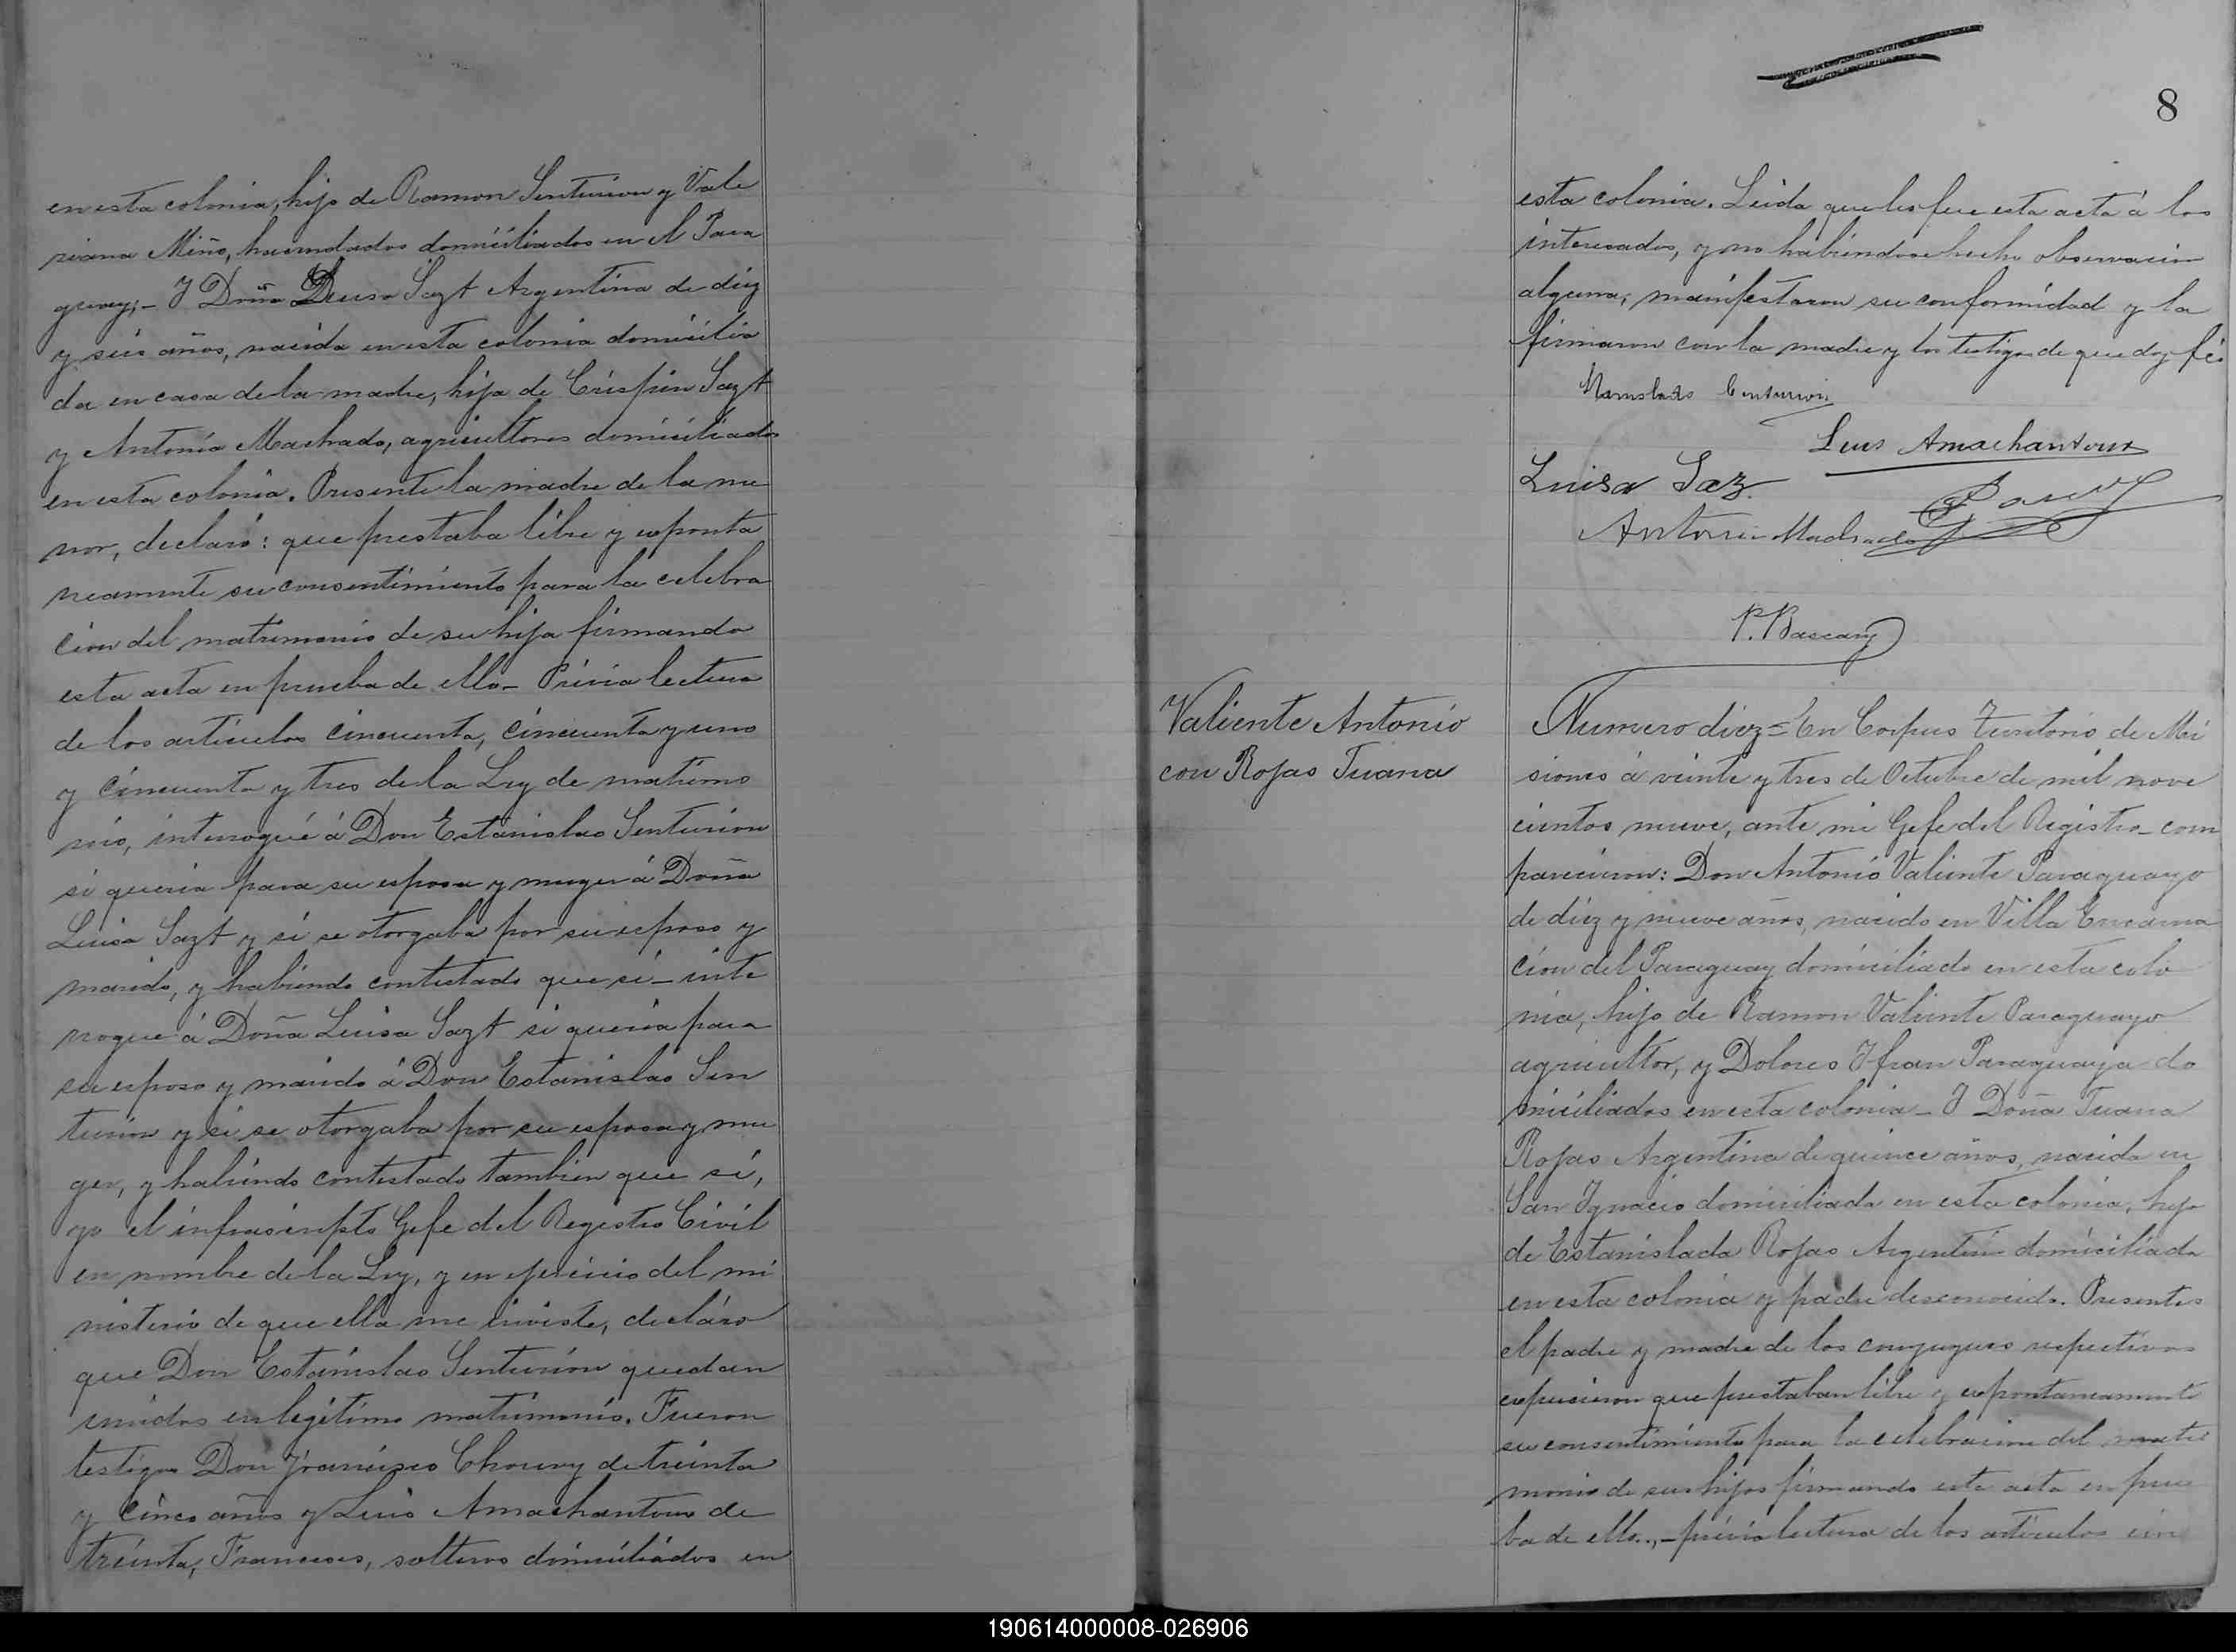 en esta colonia, hijo de Ramon Senturion y Vale
riana Miño, hacendados domiciliados en el Para
guay;- I Doña Luisa Sazt Argentina de diez
y seis años, nacida en esta colonia domicilia
da en casa de la madre, hija de Crispin Sazt
y Antonia Machado, agricultores domiciliados
en esta colonia. Presente la madre de la me
nor, declaró: que prestaba libre y esponta
neamente su consentimiento para la celebra
cion del matrimonio de su hija firmando
esta acta en prueba de ello- Prévia lectura
de los articulos cincuenta, cincuenta y uno
y cincuenta y tres de la Ley de matrimo
nio, interrogué á Don Estanislao Senturion
si queria para su esposa y muger á Doña
Luisa Sazt y si se otorgaba por su esposo y
marido, y habiendo contestado que si- inte
rrogue á Doña Luisa Sazt si queria para
su esposo y marido á Don Estanislao Sen
turion y si se otorgaba por su esposa y mu
ger, y habiendo contestado tambien que si,
yo el infrascripto Gefe del Registro Civil
en nombre de la Ley, y en ejercicio del mi
nisterio de que ella me inviste, decláro
que Don Estanislao Senturion quedan
unidos en legítimo matrimonio. Fueron
testigos Don Francisco Chouvy de treinta
y cinco años y Luis Amachantoux de
treinta, Franceses, solteros domiciliados en
8
esta colonia. Leida que les fue esta acta á los
interesados, y no habiendose hecho observacion
alguna, manifestaron su conformidad y la
firmaron con la madre y los testigos de que doy fé
Centurion
Luis Amachantoux
Luisa Saz
Antonia Machado
P. Bascary
Valiente Antonio
con Rojas Juana
Numero diez= En Corpus Territorio de Mi
siones á veinte y tres de Octubre de mil nove
cientos nueve, ante mi Gefe del Registro- com
parecieron: Don Antonio Valiente Paraguayo
de diez y nueve años, nacido en Villa Encarna
cion del Paraguay domiciliado en esta colo
nia, hijo de Ramon Valiente Paraguayo
agricultor, y Dolores Ifran Paraguaya do
miciliados en esta colonia- I Doña Juana
Rojas Argentina de quince años, nacida en
San Ignacio domiciliada en esta colonia, hija
de Estanislada Rojas Argentina domiciliada
en esta colonia y padre desconocido. Presentes
el padre y madre de los conyugues respectivos
expusieron que prestaban libre y espontaneamente
su consentimiento para la celebracion del matri
monio de sus hijos firmando esta acta en prue
ba de ello.,- prévia lectura de los artículos cin
190614000008-026906